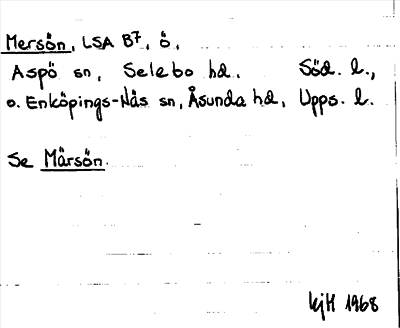 Mersön, LSA B7, ö,
Aspö sn, Selebo hd. Söd. l.,
o. Enköpings-Näs sn, Åsunda hd, Upps. l.
Se Märsön.
kjH 1968